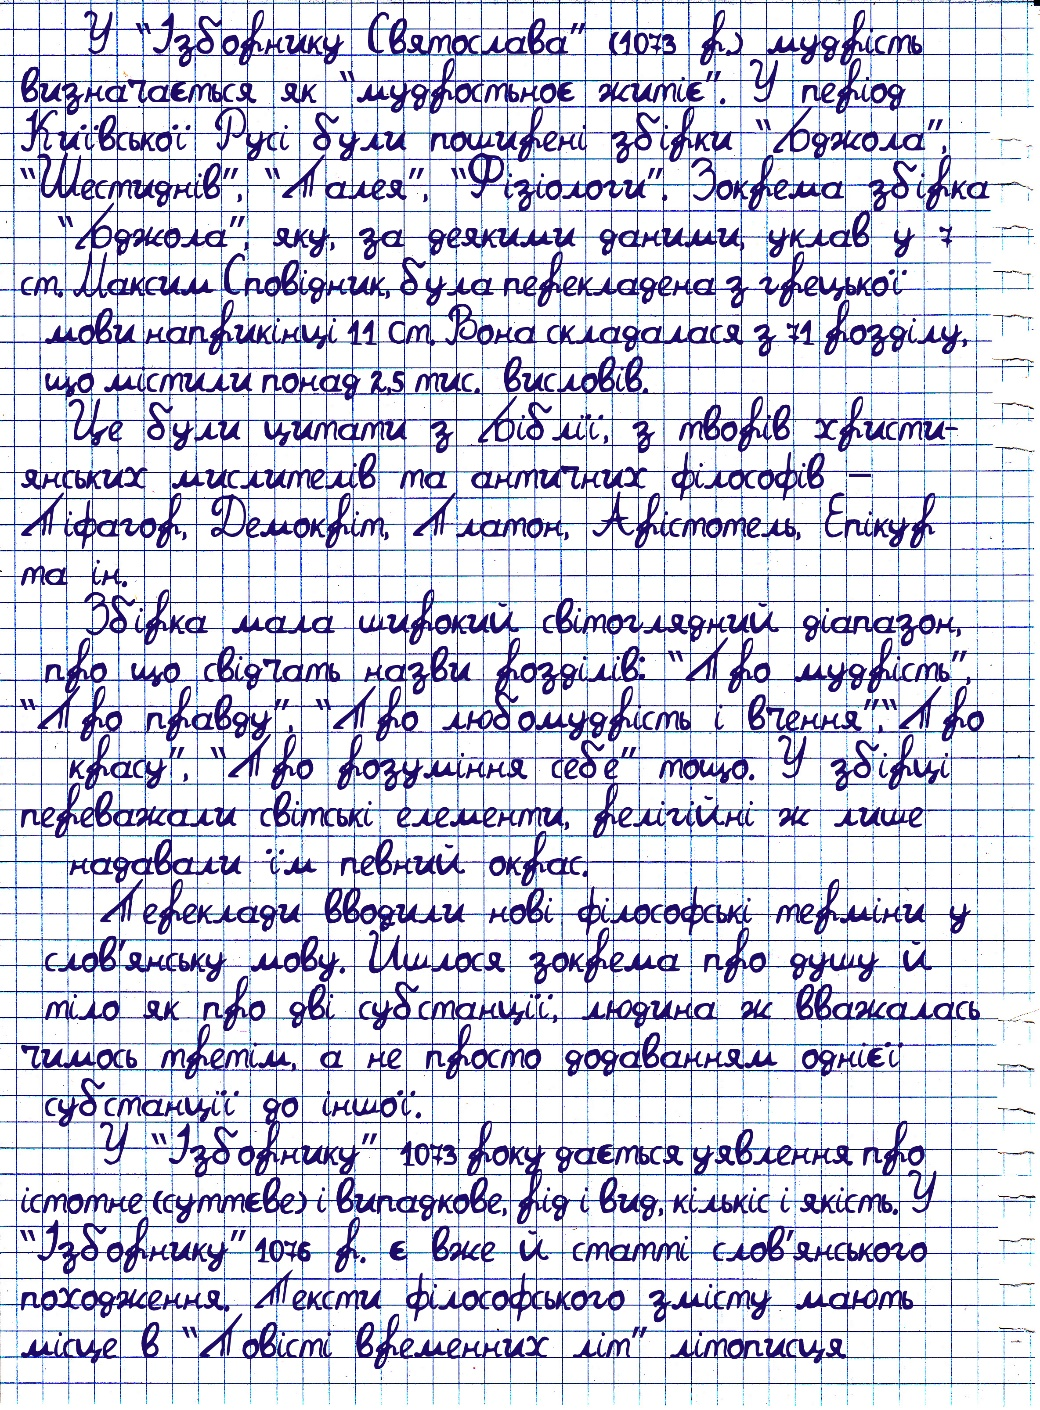 У "Ізборнику Святослава" (1073 р.) мудрість
визначається як "мудростьноє житіє". У період
Київської Русі були поширені збірки "Бджола",
"Шестиднів", "Палея", "Фізіологи". Зокрема збірка
"Бджола", яку, за деякими даними, уклав у 7
ст. Максим Сповідник, була перекладена з грецької
мови наприкінці 11 ст. Вона складалася з 71 розділу,
що містили понад 2,5 тис. висловів.
Це були цитати з Біблії, з творів христи-
янських мислителів та античних філософів —
Піфагор, Демокріт, Платон, Арістотель, Епікур
та ін.
Збірка мала широкий світоглядний діапазон,
про що свідчать назви розділів: "Про мудрість",
"Про правду", "Про любомудрість і вчення", "Про
красу", "Про розуміння себе" тощо. У збірці
переважали світські елементи, релігійні ж лише
надавали їм певний окрас.
Переклади вводили нові філософські терміни у
слов'янську мову. Йшлося зокрема про душу й
тіло як про дві субстанції, людина ж вважалась
чимось третім, а не просто додаванням однієї
субстанції до іншої.
У "Ізборнику" 1073 року дається уявлення про
істотне (суттєве) і випадкове, рід і вид, кількіс і якість. У
"Ізборнику" 1076 р. є вже й статті слов'янського
походження. Тексти філософського змісту мають
місце в "Повісті временних літ" літописця